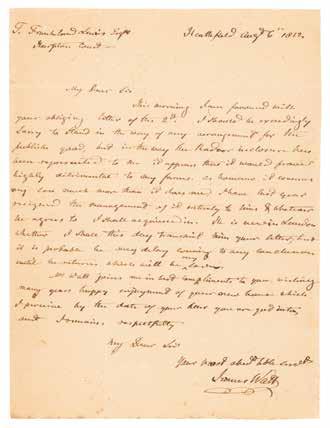 T. Frankland Lewis Esqr
Harpton Court
Heathfield Augt 6th 1812.
My Dear Sir
This morning I am favoured with
your obliging letter of the 2d. I should be exceedingly
sorry to stand in the way of any arrangement for the
publick good, but in the way the Radnor inclosure has
been represented to me it appears that it would prove
highly detrimental to my farms. as however it concerns
my son much more than it does me I have last year
resigned the management of it entirely to him & whatever
he agrees to I shall acquiesce in. He is now in London
whither I shall this day transmit him your letter, but
it is probable he may delay coming to any conclusion
until he returns which will be
Mrs Watt joins me in best compliments to you wishing
many years happy enjoyment of your new house which
I perceive by the date of your
and I remain respectfully
My Dear Sir
Your most obedt hble servt
James Watt